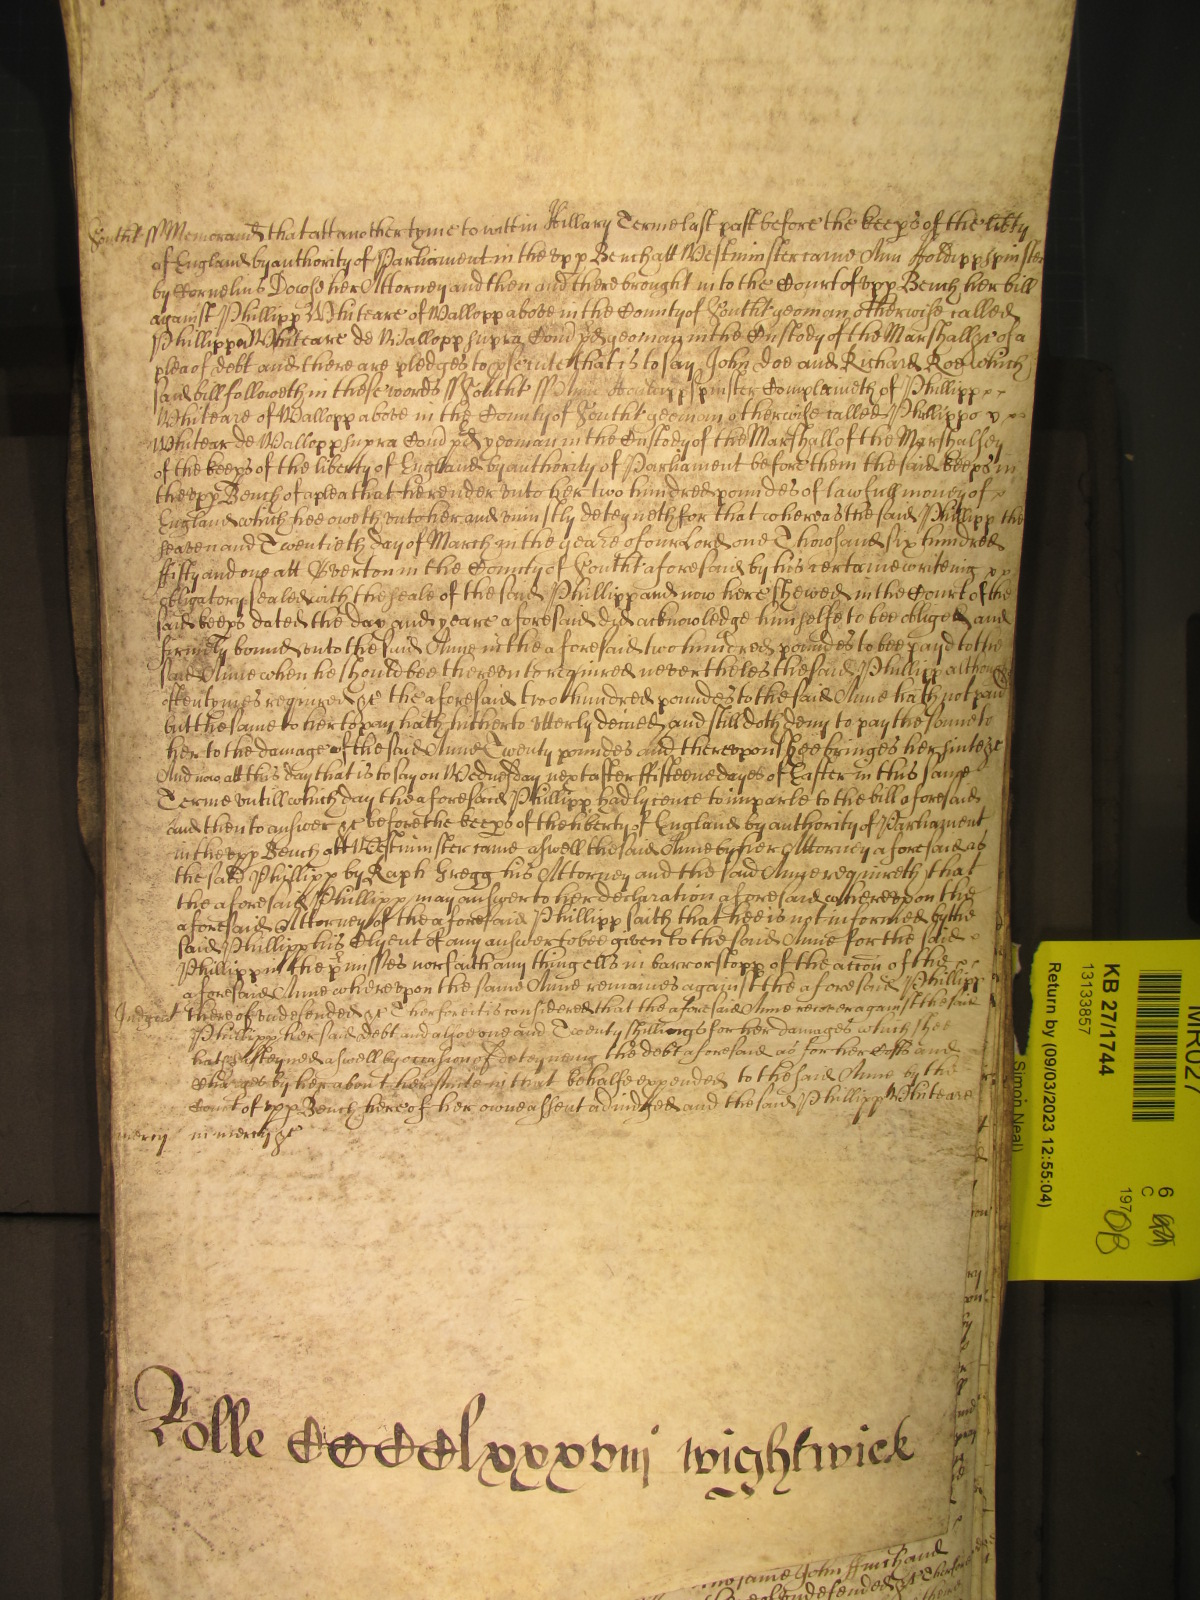 Southt ss Memorand that att another tyme to witt in Hillary Terme last past before the keeps of the lib'ty
of England by authority of Parliament in the upp Bench att Westminster came Ann spinster
by Cornelius Dowse her Attorney and then and there brought into the Court of upp Bench her bill
against Phillipp Whiteare of Wallopp above in the County of Southt yeoman otherwise called
Phillippo Whiteare de Wallopp supra Com pd yeoman in the Custody of the Marshall &c of a
plea of debt and there are pledges to psecute that is to say John Doe and Richard Roe which
said bill followeth in these words ss Southt ss Ann spinster Complaineth of Phillipp
Whiteare of Wallopp above in the County of Southt yeoman otherwise called Phillippo
Whitear de Wallopp supra Com pd yeoman in the Custody of the Marshall of the Marshallsey
of the keeps of the liberty of England by authority of Parliament before them the said keeps in
the upp Bench of a plea that he render unto her two hundred poundes of lawfull money of
England which hee oweth unto her and uniustly deteyneth for that whereas the said Phillipp the
seaven and Twentieth day of March in the yeare of our Lord one Thowsand six hundred
ffifty and one att Overton in the County of Southt aforesaid by his certaine writeing
obligatory sealed with the seale of the said Phillipp and now here shewed in the Court of the
said keeps dated the day and yeare aforesaid did acknowledge himselfe to bee obliged and
firmely bound unto the said Anne in the aforesaid two hundred poundes to bee payd to the
said Anne when he should bee thereunto required neverthelesse the said Phillipp although
oftentymes required &c the aforesaid two hundred poundes to the said Anne hath not paid
but the same to her to pay hath hitherto utterly denied and still doth deny to pay the same to
her to the damage of the said Anne Twenty poundes and thereupon shee bringes her suite &c
And now att this day that is to say on Wednesday next after ffifteene dayes of Easter in this same
Terme untill which day the aforesaid Phillipp had lycence to imparle to the bill aforesaid
and then to answer &c before the keeps of the liberty of England by authority of Parliament
in the upp Bench att Westminster came aswell the said Anne by her Attorney aforesaid as
the said Phillipp by Raph Gregg his Attorney and the said Anne requireth that
the aforesaid Phillipp may answer to her declaration aforesaid whereupon the
aforesaid Attorney of the aforesaid Phillipp saith that hee is not informed by the
said Phillipp his Clyent of any answer to bee given to the said Anne for the said
Phillipp in the pmisses nor saith any thing ells in barr or stopp of the action of the
aforesaid Anne whereupon the same Anne remaines against the aforesaid Phillipp
Judgmt thereof undefended &c Therfore it is considered that the aforesaid Anne recover against the said
Phillipp her said debt and alsoe one and Twenty shillings for her damages which shee
hath susteyned aswell by occasion of deteyneing the debt aforesaid as for her Costs and
Charges by her about her suite in that behalfe expended to the said Anne by the
Court of upp Bench here of her owne assent adiudged and the said Phillipp Whiteare
mercy in mercy &c
Rolle CCCClxxxviij wightwick
came John ffinch and
undefended &c Therfore
MR027
KB 27/1744
13133857
Return by (09/03/2023 12:55:04)
Simon Neal)
6
C
197